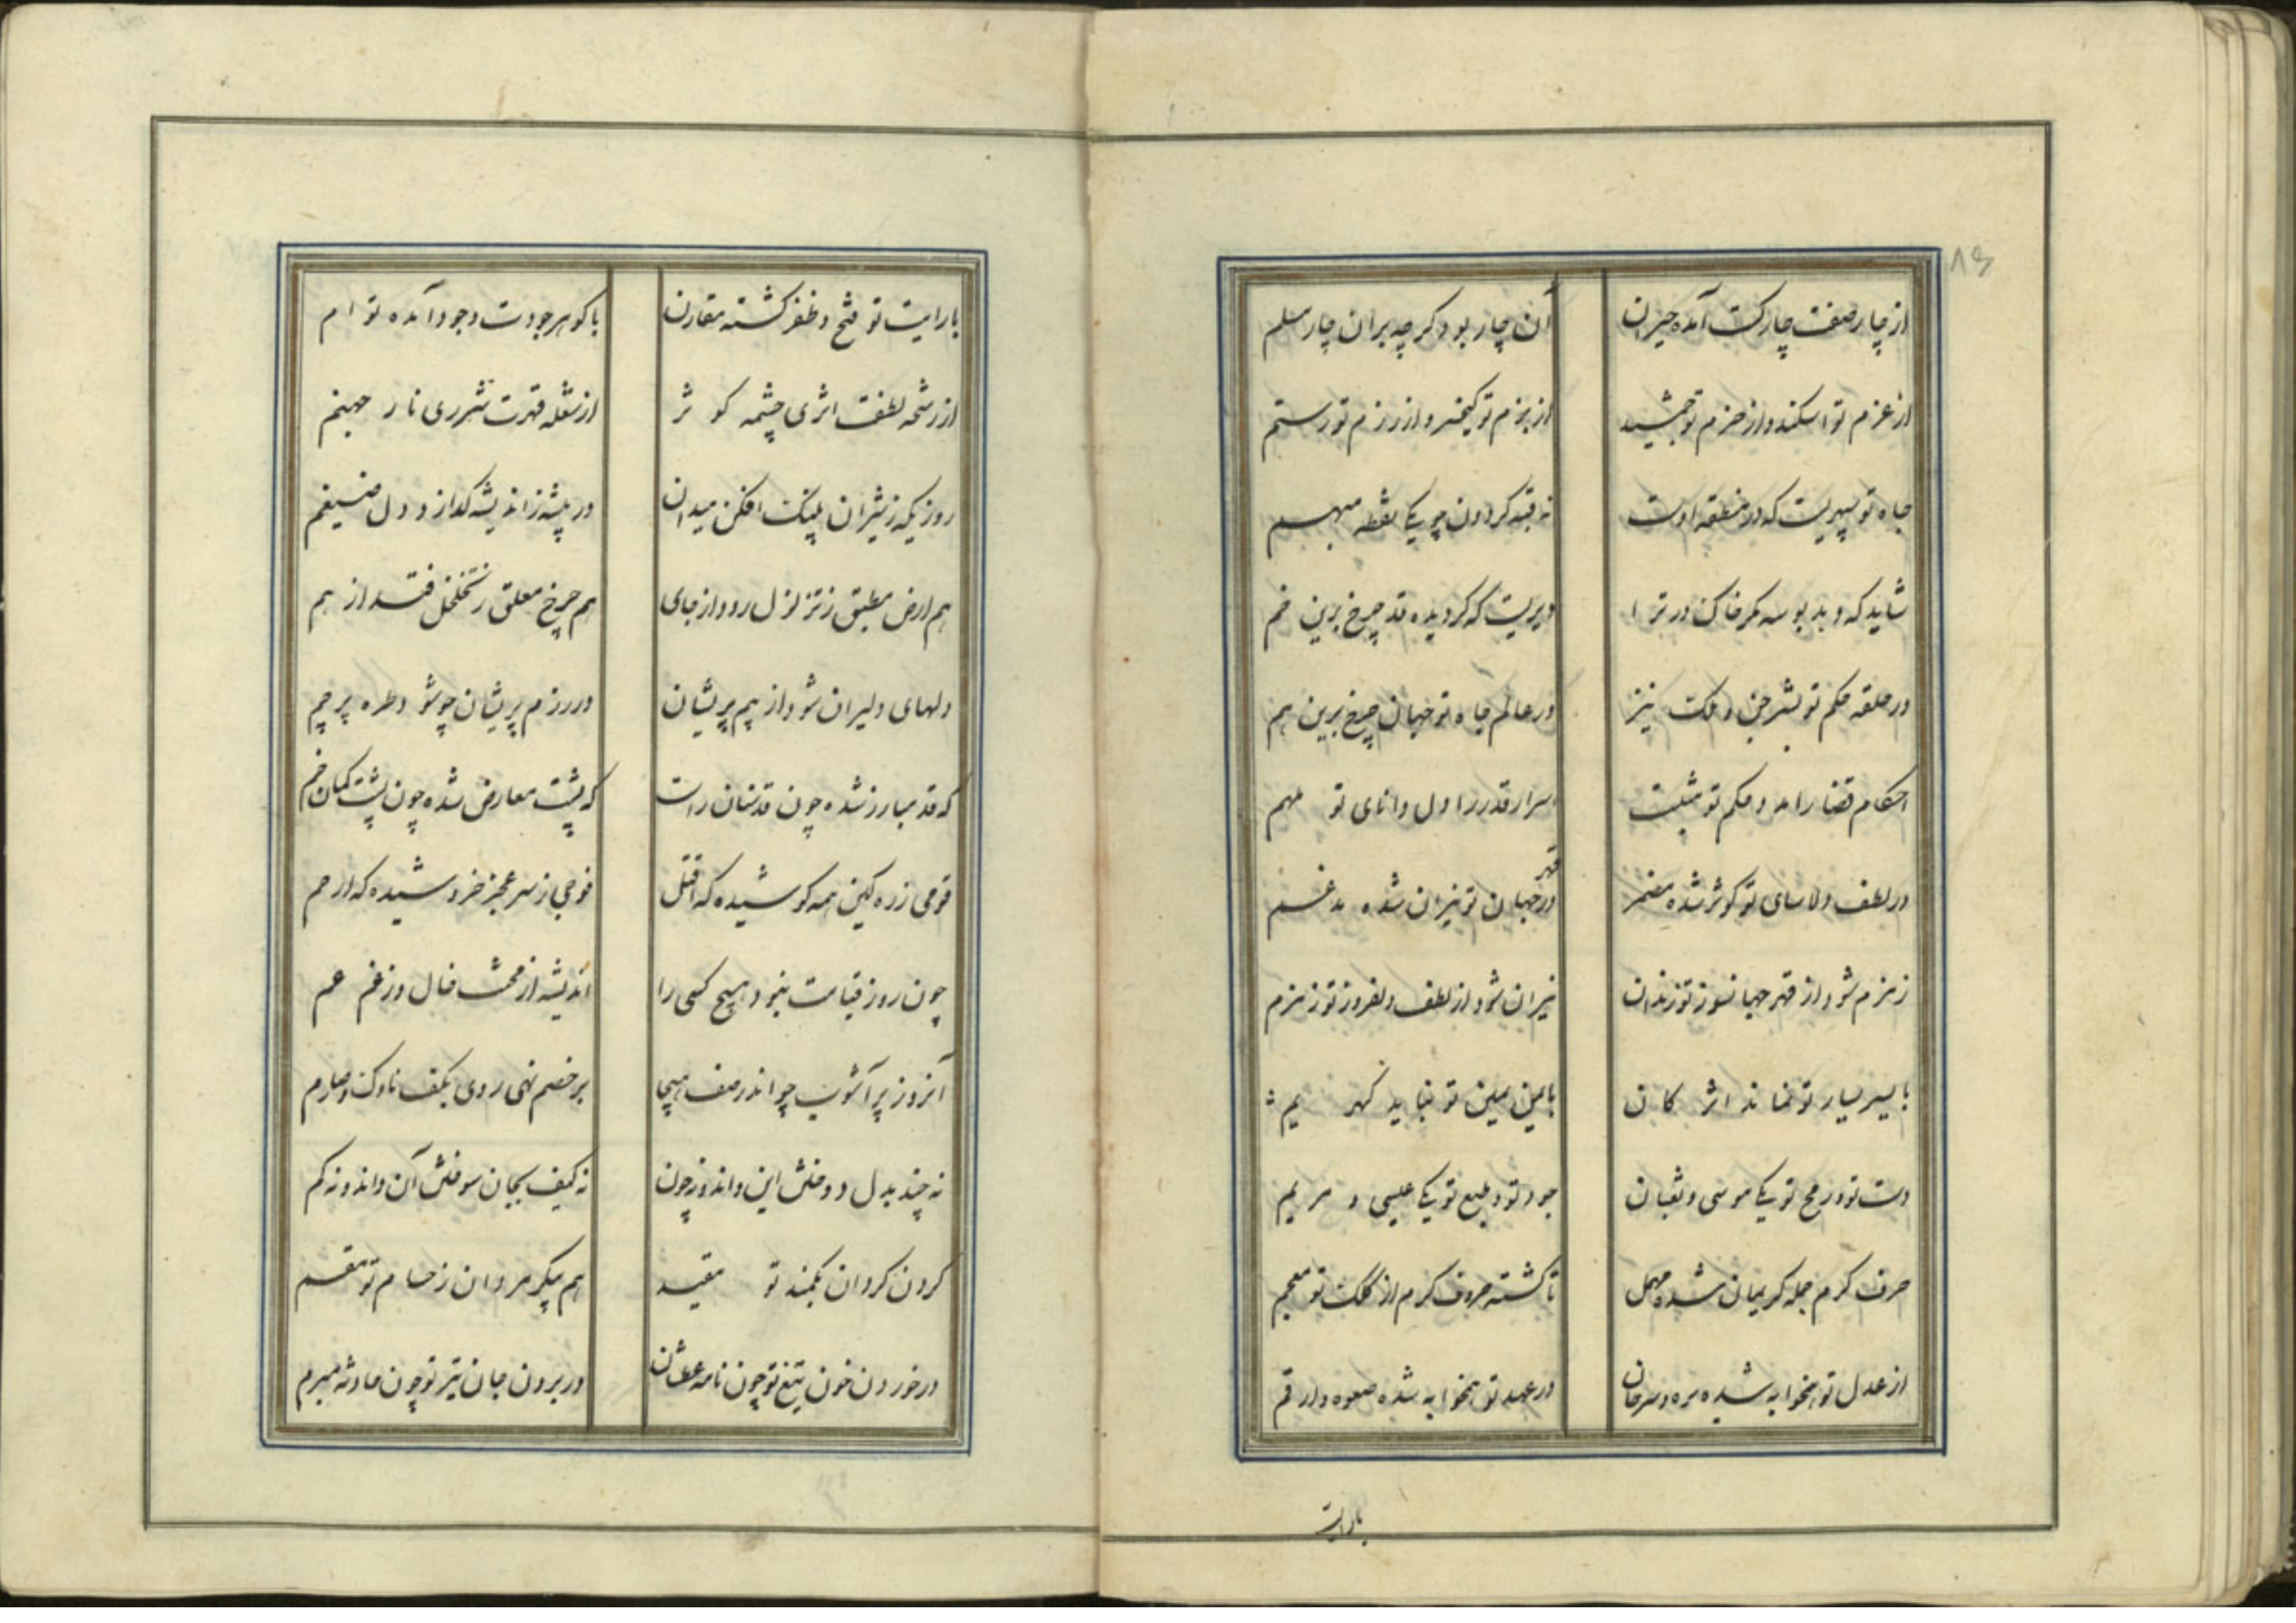 ۸۶
از چار صفت چار کست آمده حیران آن چار بود گرچه بران چار مسلم
از عزم تو اسکندر و از حزم تو جمشید از بزم تو کیخسرو از رزم تو رستم
جاه تو سپهریست که در منطقه اوست نه قبه گردون چو یکی نقطه مبهم
شاید که دهد بوسه مگر خاک درت را دیریست که گردیده قد چرخ برین خم
در حلقه حکم تو بشر جن و ملک نیز در عالم جاه تو جهان چرخ برین هم
احکام قضا را مد و حکم تو مثبت اسرار قدر را دل دانای تو ملهم
در لطف دلاسای تو کوثر شده مضمر در قهر جهان تو نیران شده مدغم
زمزم شود از قهر جهانسوز تو نیران نیران شود از لطف دلفروز تو زمزم
با یسر یسار تو نماند اثر کان با یمن یمین تو نباید گهر یم
دست تو و رمح تو یکی موسی و ثعبان جود تو و طبع تو یکی عیسی و مریم
حرف کرم جمله کریمان شده مهمل تا گشته حروف کرم از کلک تو معجم
از عدل تو همخوابه شده بره و سرحان در عهد تو همخوابه شده صعوه و ارقم
با رایت
با رایت تو فتح و ظفر گشته مقارن با گوهر جودت وجود آمده توام
از رشحه لطفت اثری چشمه کوثر از شعله قهرت شرری نار جهنم
روزیکه ز شیران پلنگ افکن میدان در بیشه ز اندیشه گدازد دل ضیغم
هم ارض مطبق ز تزلزل رود از جای هم چرخ معلق ز تخلخل فتد از هم
دلهای دلیران شود از بیم پریشان در رزم پریشان چو شود طره پرچم
که قد مبارز شده چون قد سنان راست که پشت معارض شده چون پشت کمان خم
قومی زره کین همه کوشیده که اقتل فوجی ز سر عجز خروشیده که ارحم
چون روز قیامت نبود هیچ کسی را اندیشه از محنت خال و ز غم عم
آنروز پر آشوب چو اندر صف هیجا بر خصم نهی روی بکف ناوک و صارم
نه چند بدل دوختش این داند و نه چون نه کیف بجان سوختش آن داند و نه کم
گردن گردان بکمند تو مقید هم پیکر مردان ز حسام تو مقسم
در خوردن خون تیغ تو چون نامه عطشان در بردن جان تیر تو چون حادثه مبرم